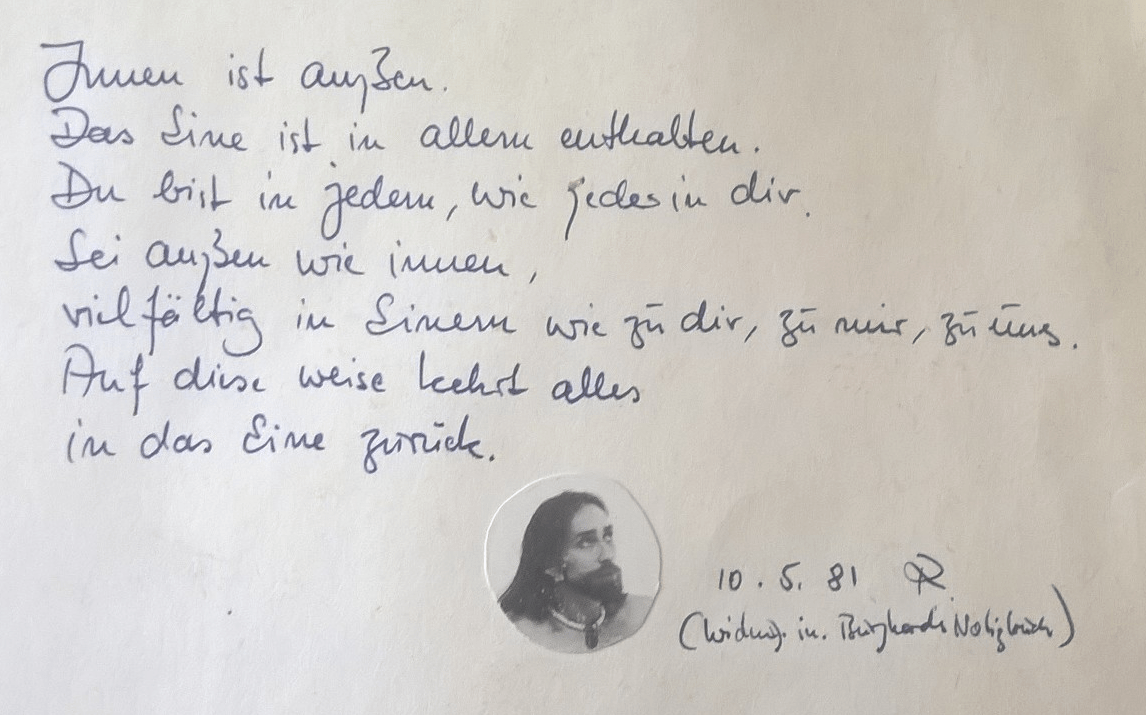 Innen ist außen.
Das Eine ist in allem enthalten.
Du bist in jedem, wie jedes in dir.
Sei außen wie innen,
vielfältig in Einem wie zu dir, zu mir, zu uns.
Auf diese weise kehrt alles
in das Eine zurück.
10.5.81 R
(Widmg. in. Burghards Notizbuch)